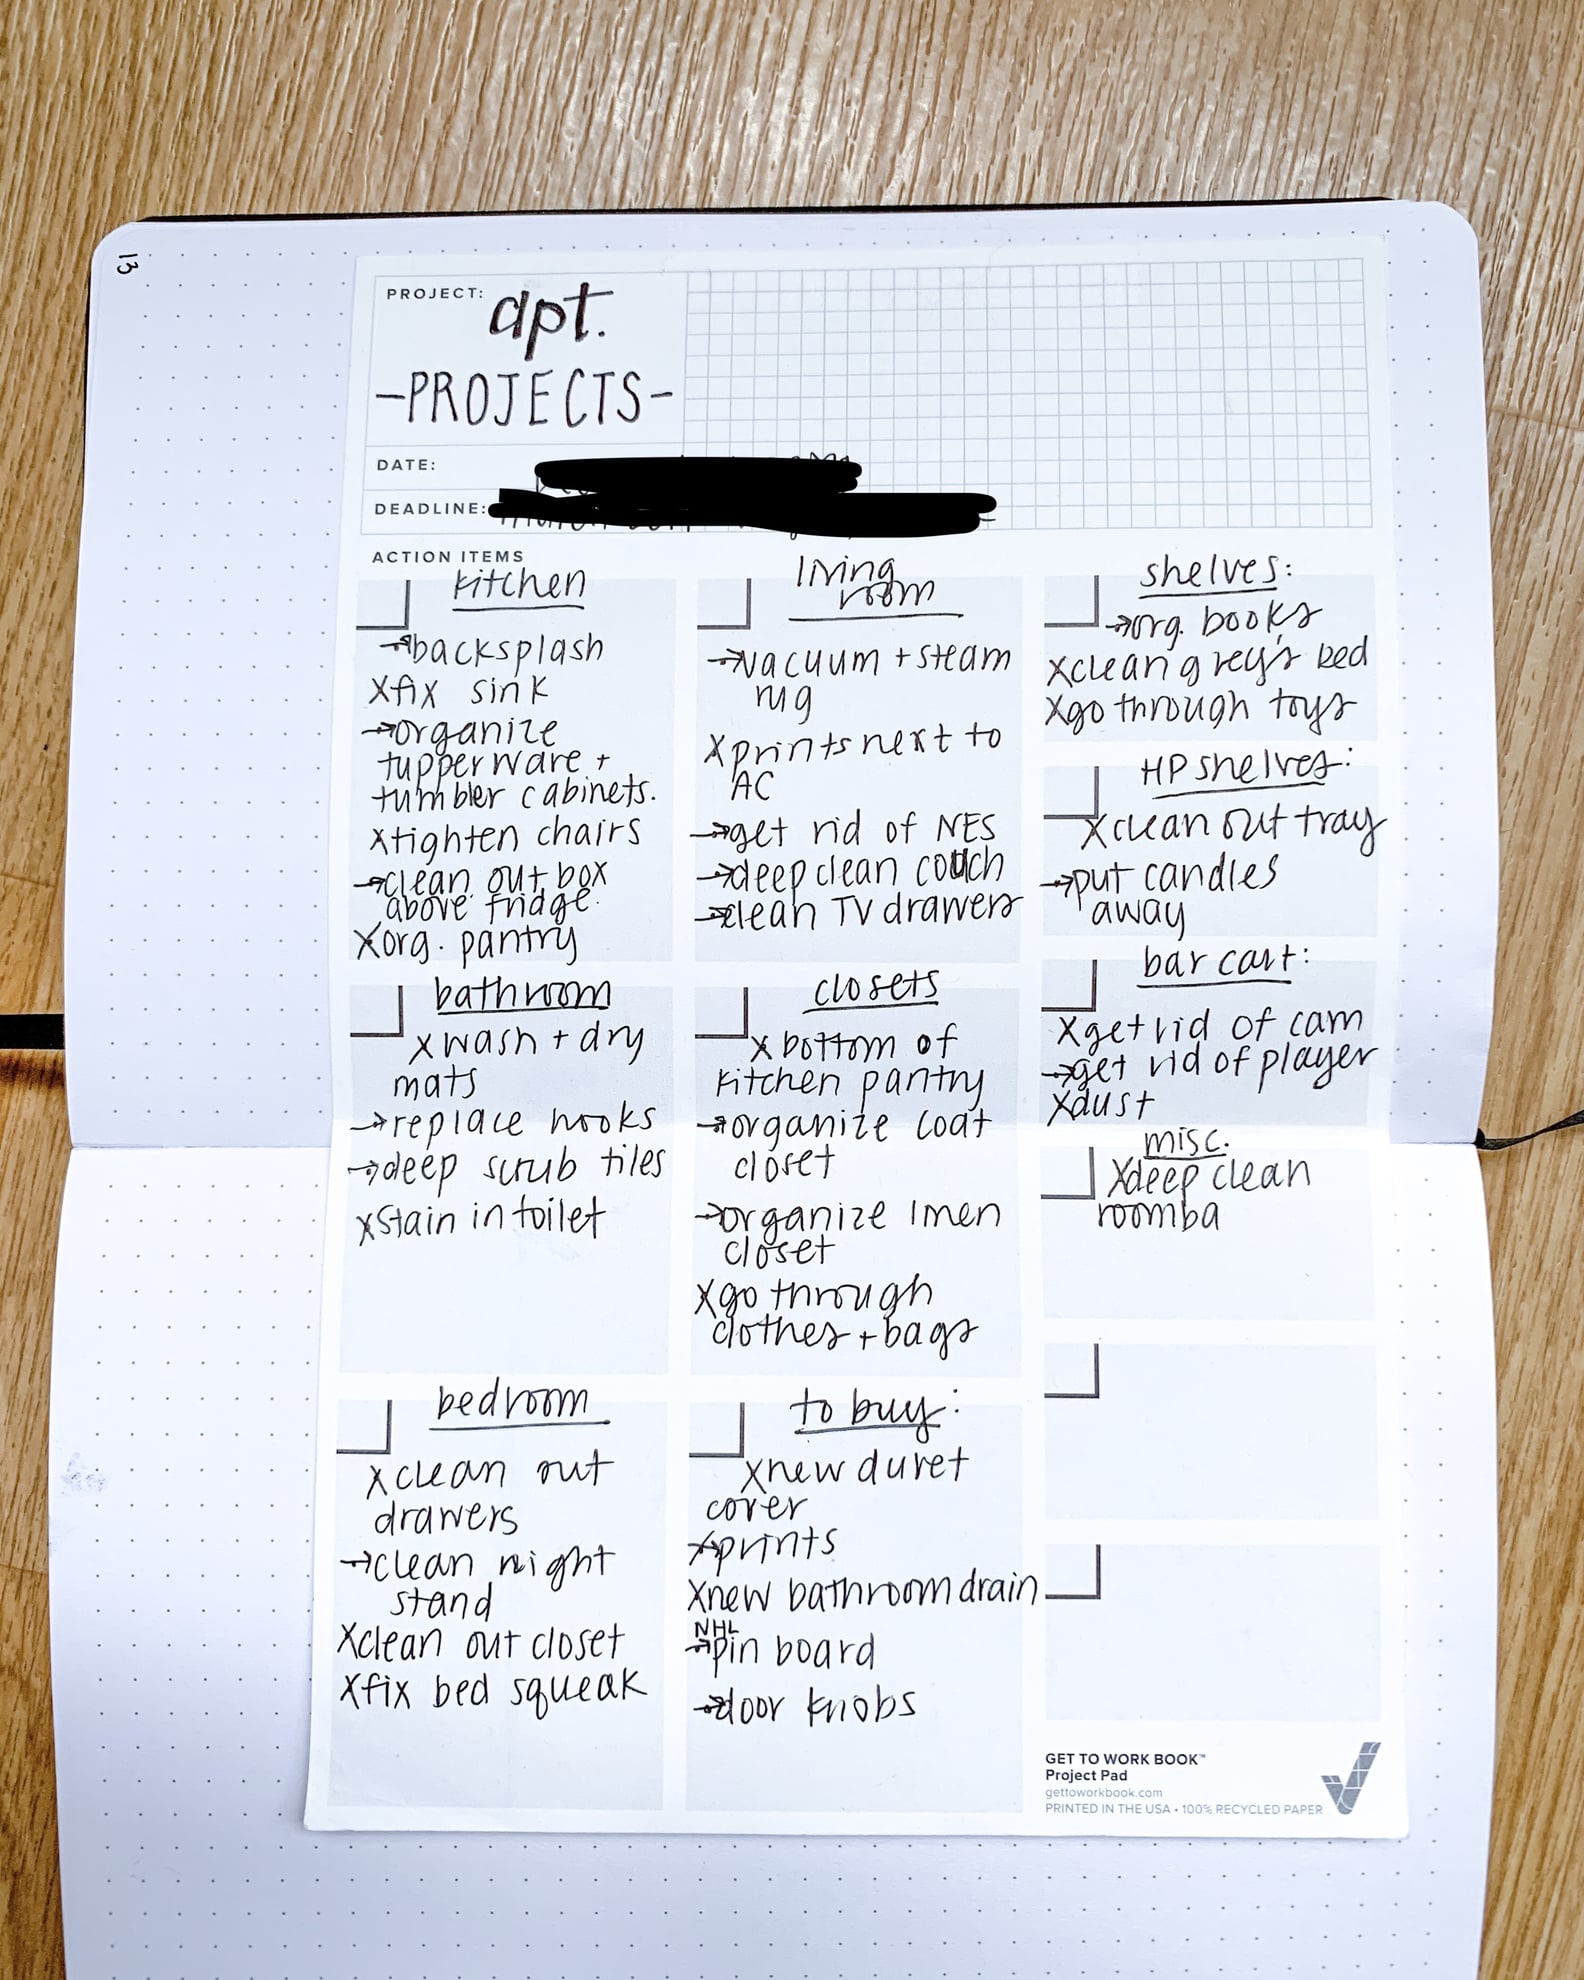 13
PROJECT: apt.
-PROJECTS-
DATE:
DEADLINE:
ACTION ITEMS
kitchen
→backsplash
xfix sink
→organize
tupperware +
tumbler cabinets.
xtighten chairs
→clean out box
above fridge.
xorg. pantry
bathroom
xwash + dry
mats
→replace hooks
→deep scrub tiles
xstain in toilet
bedroom
xclean out
drawers
→clean night
stand
xclean out closet
xfix bed squeak
living
room
→vacuum + steam
rug
xprints next to
AC
→get rid of NES
→deep clean couch
→clean TV drawers
closets
xbottom of
kitchen pantry
→organize coat
closet
→organize linen
closet
xgo through
clothes + bags
to buy:
xnew duvet
cover
xprints
xnew bathroom drain
NHL
→pin board
→door knobs
shelves:
→org. books
xclean grey's bed
xgo through toys
HP shelves:
xclean out tray
→put candles
away
bar cart:
xget rid of cam
→get rid of player
xdust
misc.
xdeep clean
roomba
GET TO WORK BOOK™
Project Pad
gettoworkbook.com
PRINTED IN THE USA • 100% RECYCLED PAPER